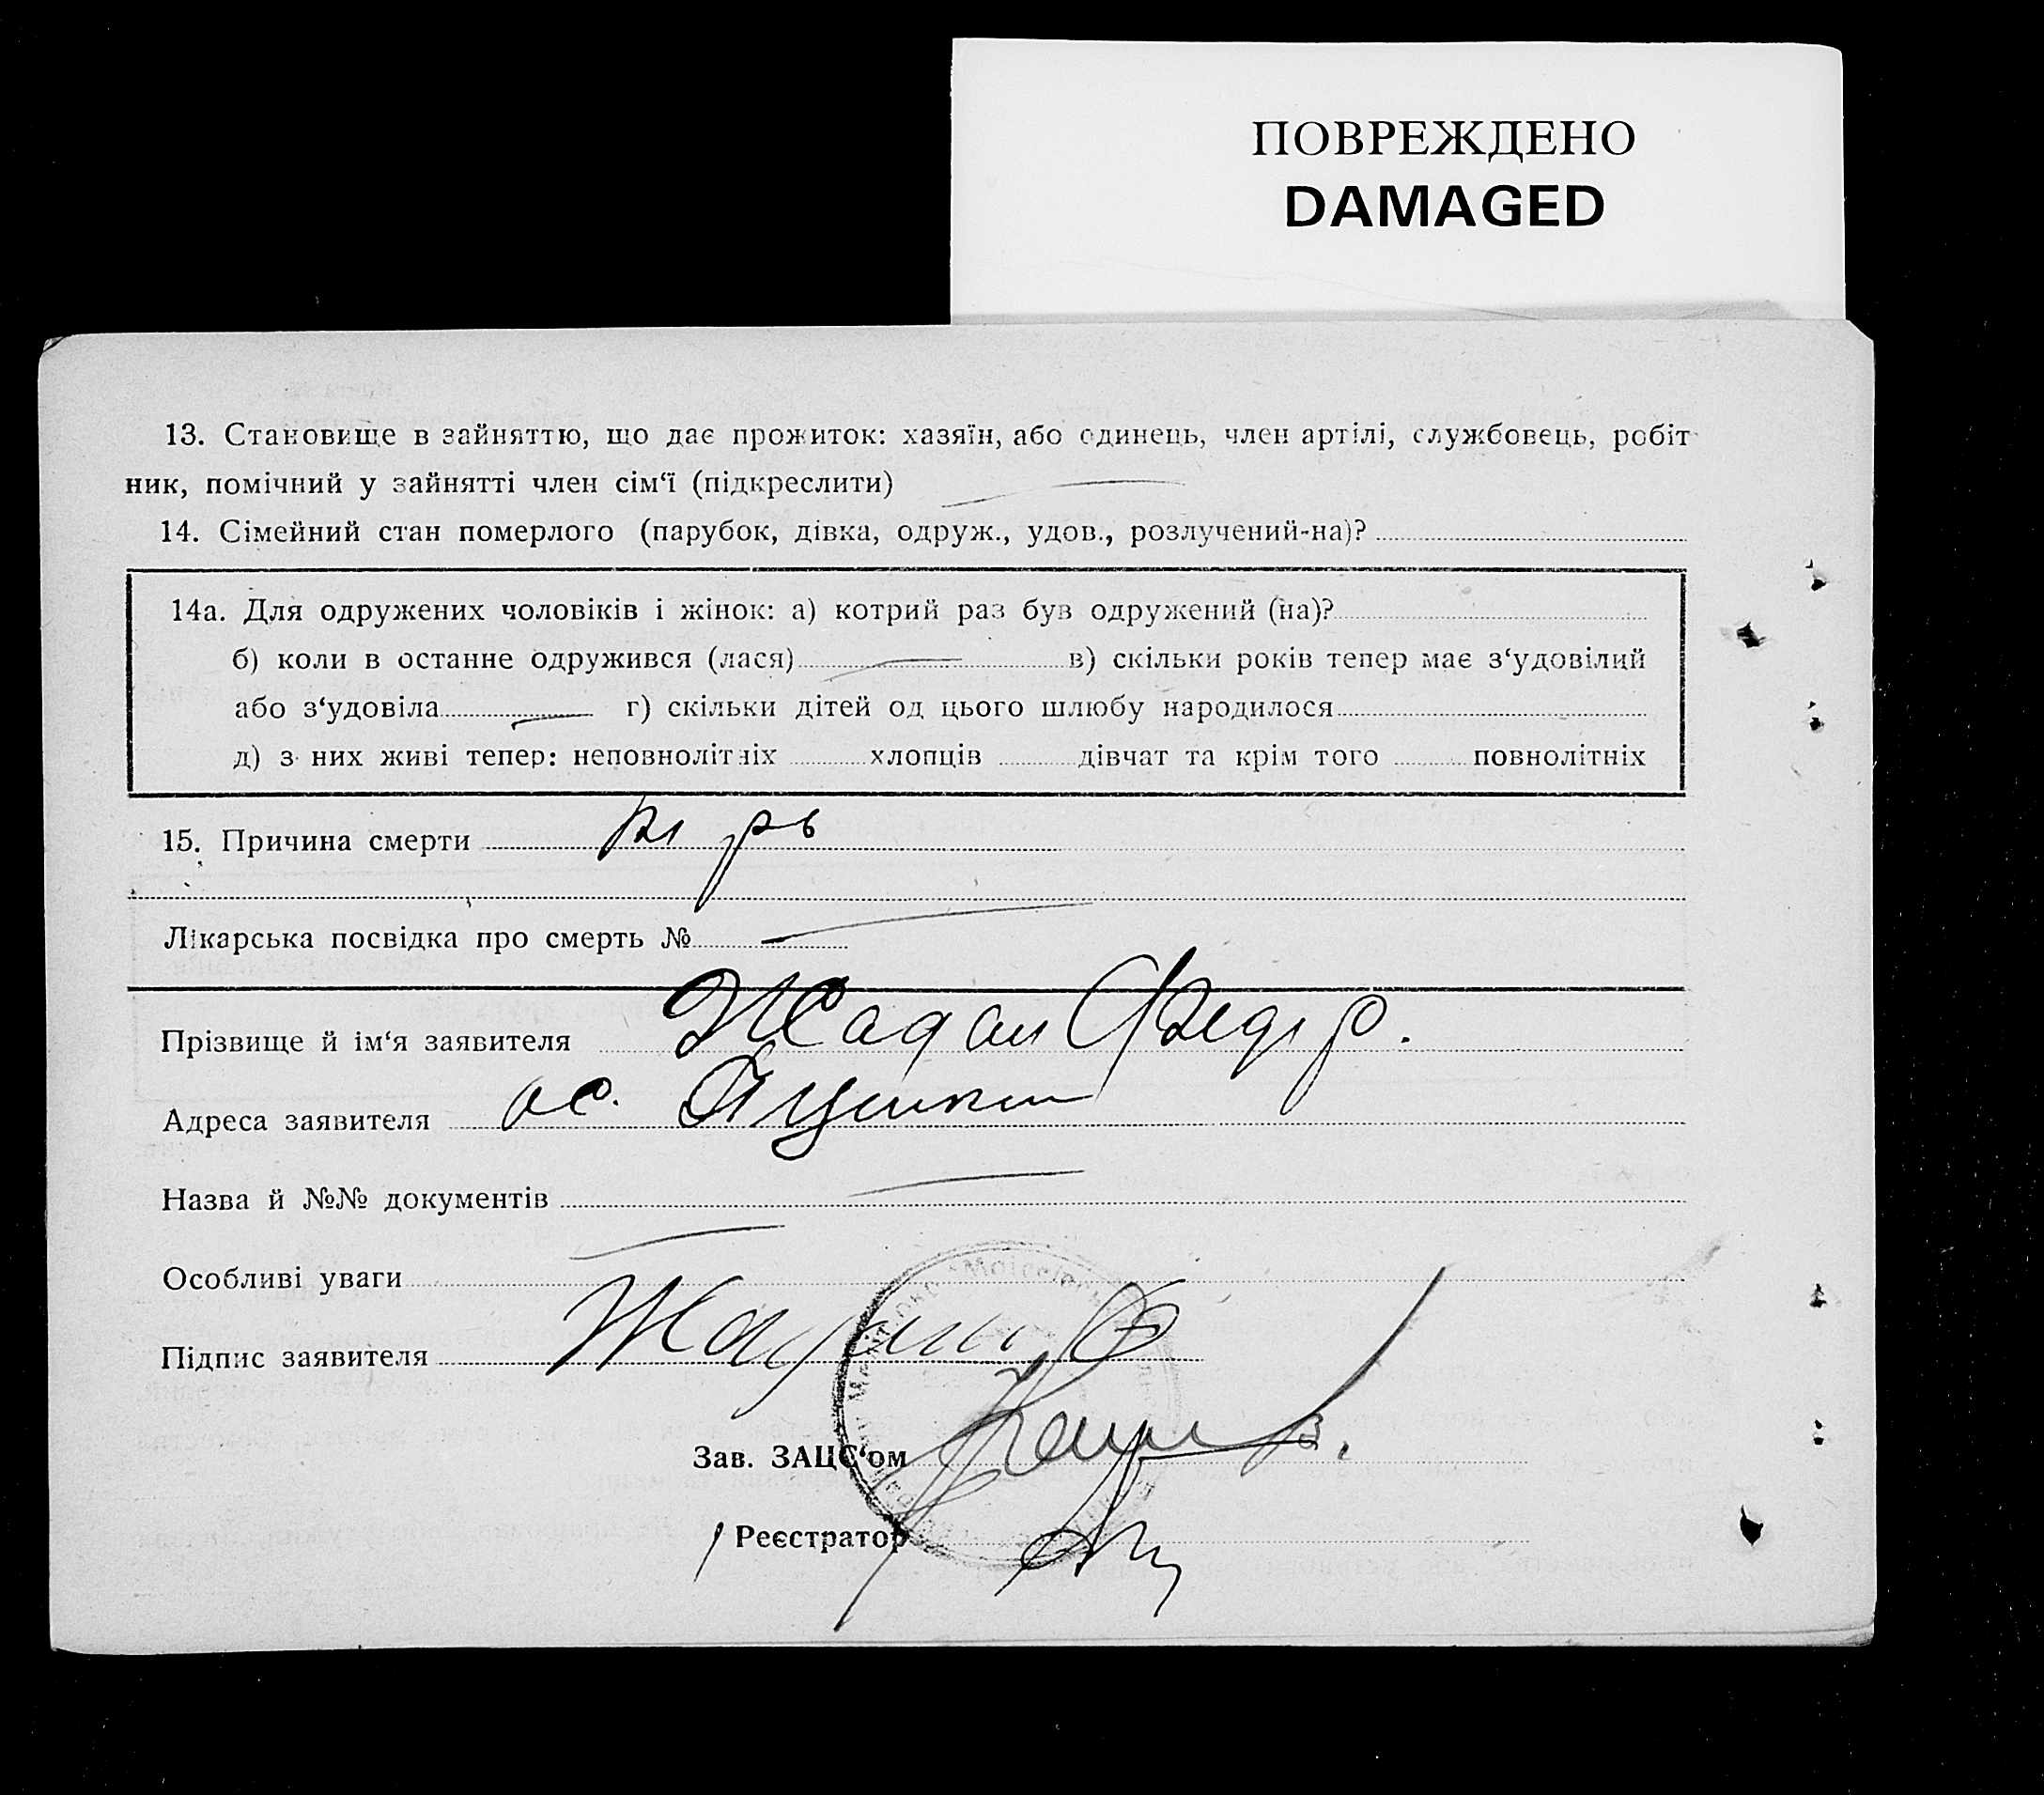 ПОВРЕЖДЕНО
DAMAGED
13. Становище в зайняттю, що дає прожиток: хазяїн, або одинець, член артілі, службовець, робіт
ник, помічний у зайнятті член сім‘ї (підкреслити)
14. Сімейний стан померлого (парубок, дівка, одруж., удов., розлучений-на)?
14а. Для одружених чоловіків і жінок: а) котрий раз був одружений (на)?
б) коли в останне одружився (лася) в) скільки років тепер має з‘удовілий
або з‘удовіла г) скільки дітей од цього шлюбу народилося
д) з них живі тепер: неповнолітніх хлопців дівчат та крім того повнолітніх
15. Причина смерти кір
Лікарська посвідка про смерть №
Прізвище й ім‘я заявителя Жадан Федір.
Адреса заявителя
Назва й №№ документів
Особливі уваги
Підпис заявителя Жадан Ф
Зав. ЗАЦС‘ом
Реєстратор